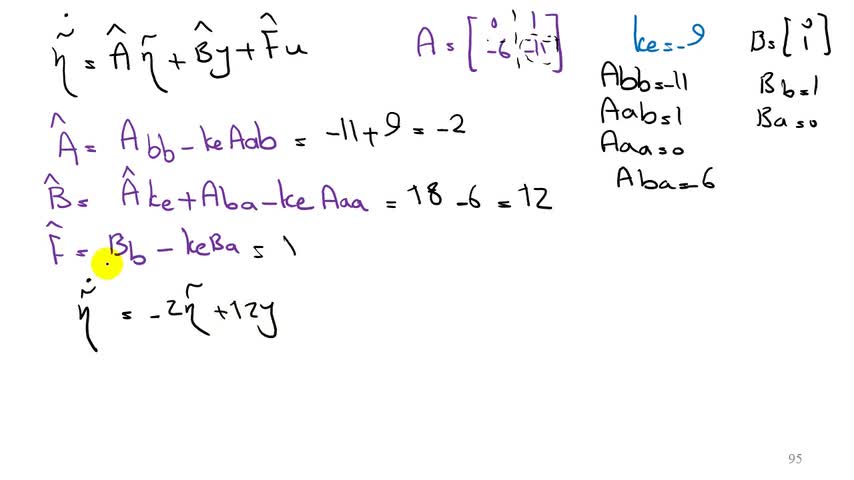 η̃̇ = Â η̃ + B̂y + F̂u
A = [0 1; -6 -11]
ke = -9
B = [0; 1]
Abb = -11
Bb = 1
Aab = 1
Ba = 0
Aaa = 0
Aba = -6
Â = Abb - keAab = -11 + 9 = -2
B̂ = Âke + Aba - keAaa = 18 - 6 = 12
F̂ = Bb - keBa = 1
η̃̇ = -2η̃ + 12y
95